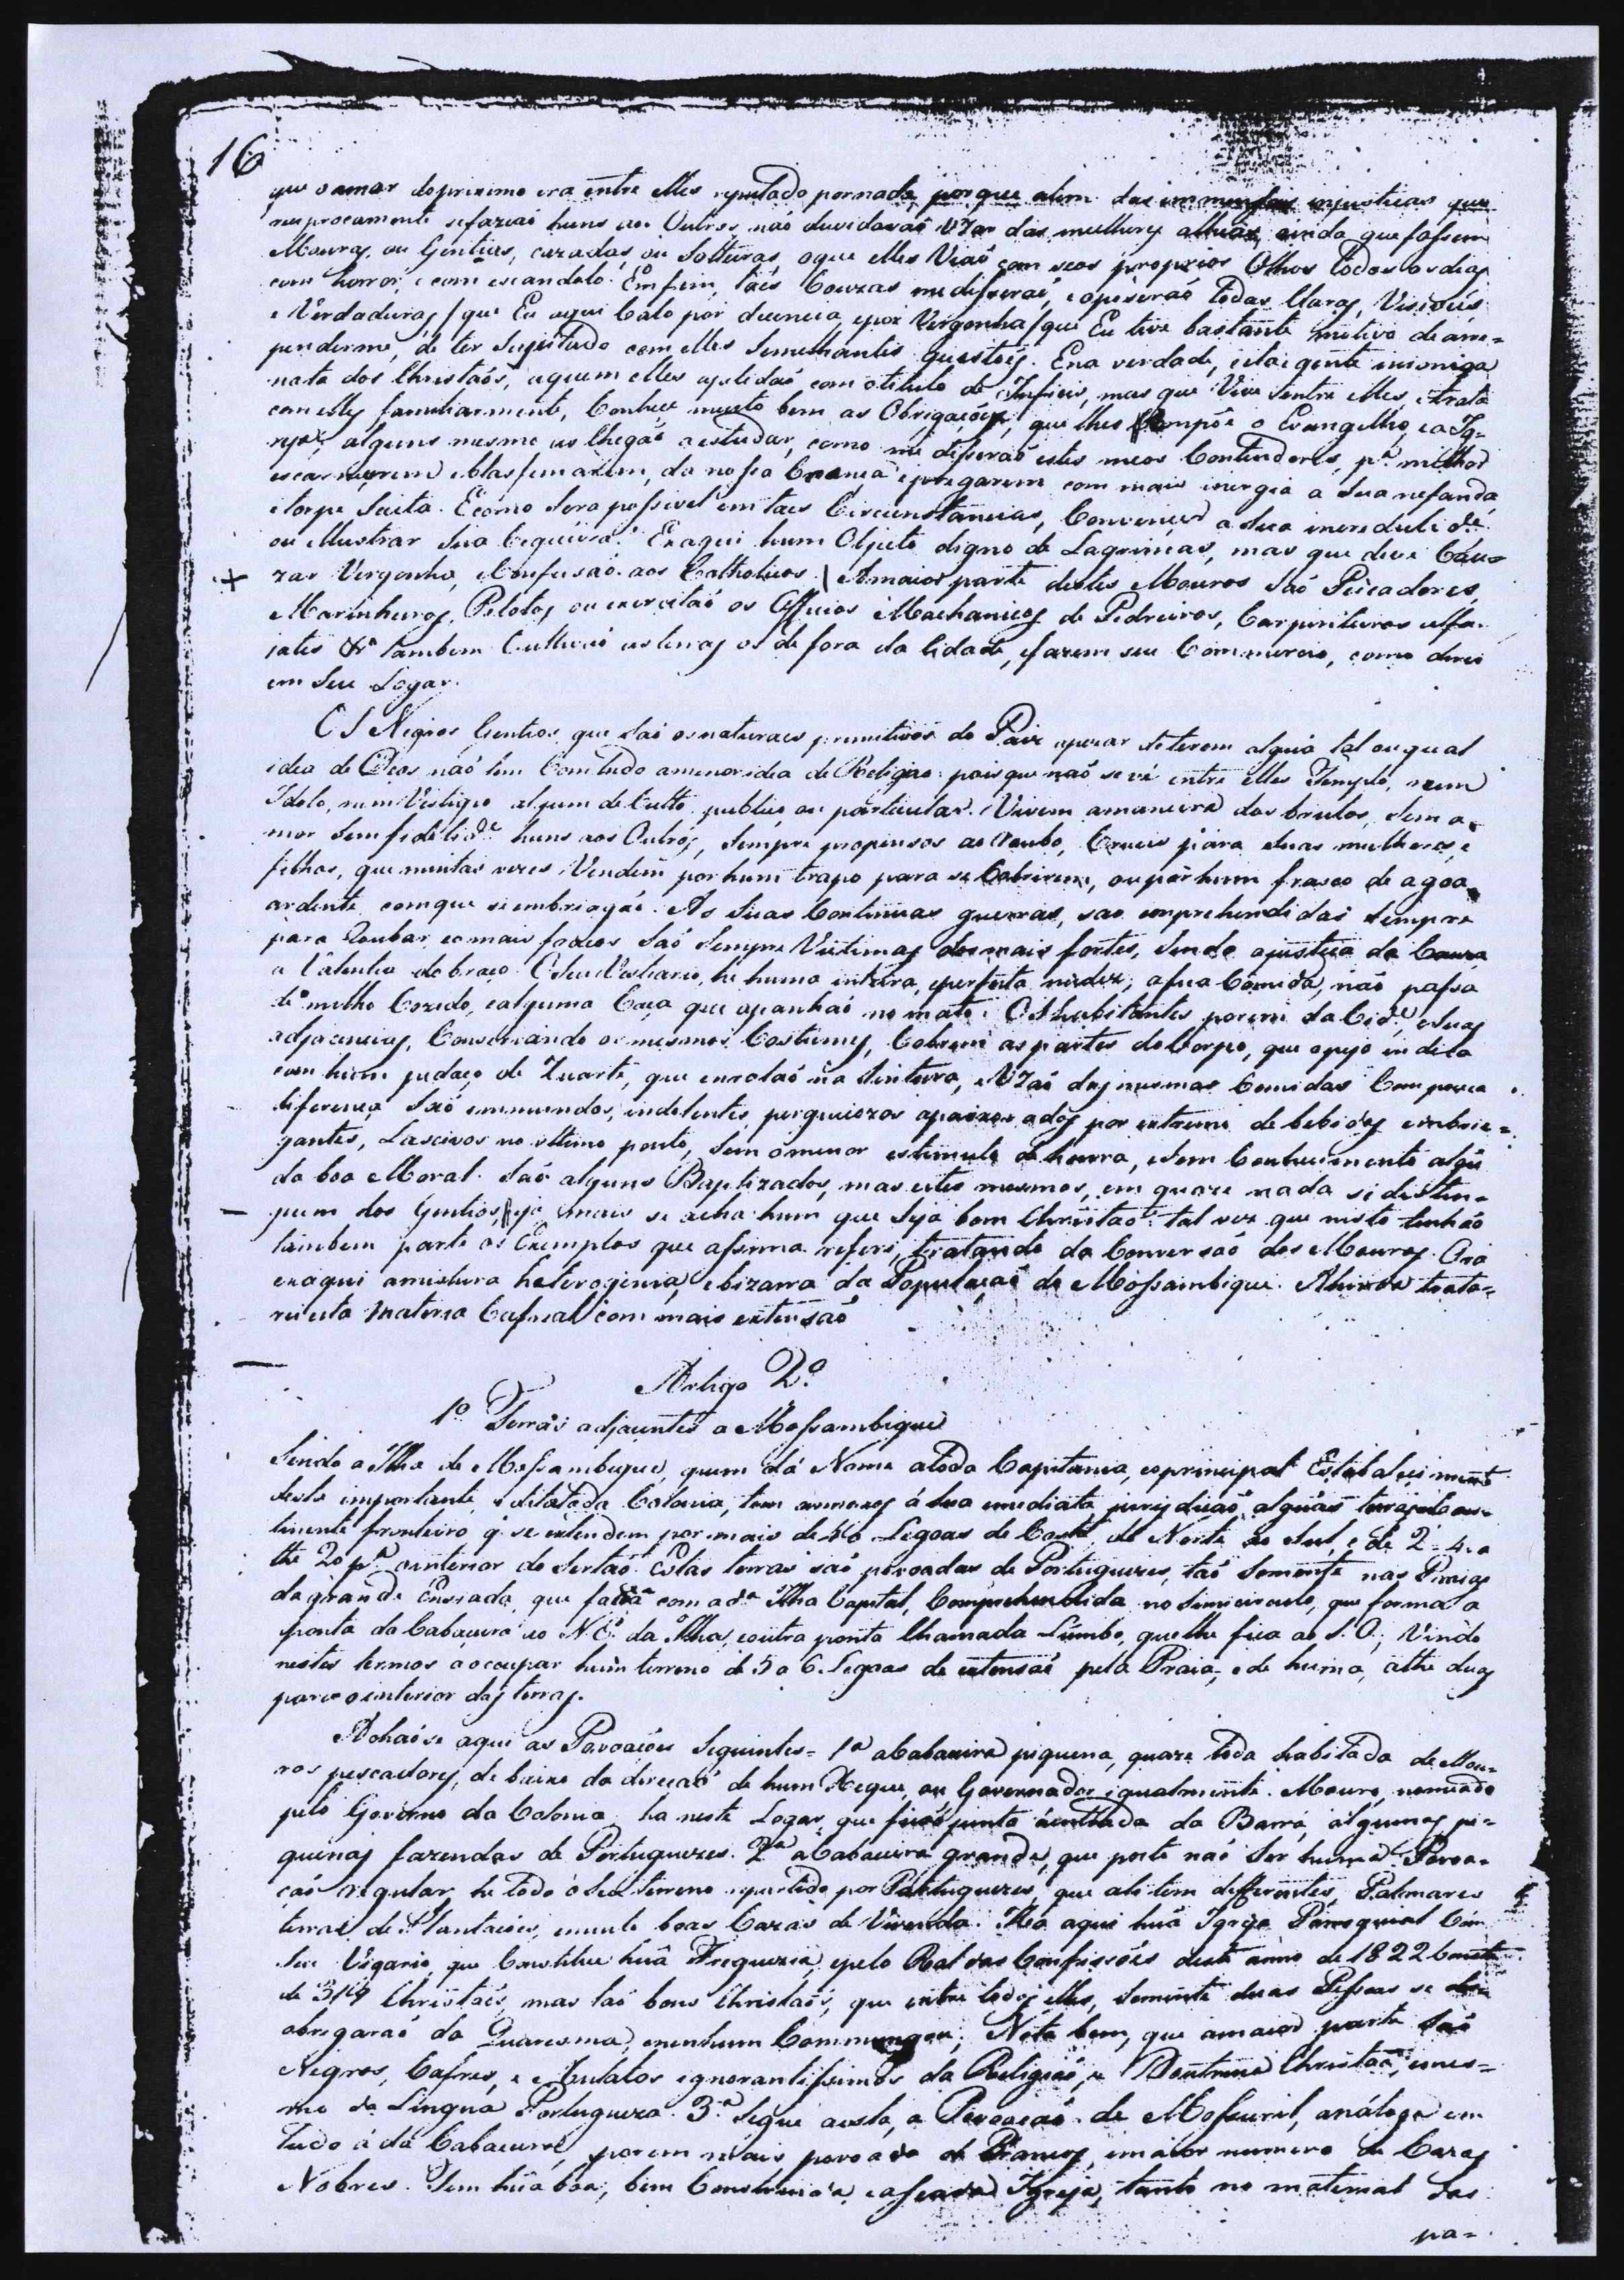 16
que o amor do proximo era entre elles reputado por nada, porque alem das immensas injusticas que
reciprocamente se faziaõ huns aos Outros, naõ duvidavaõ Uzar das mulheres alheas, ainda que fossem
Mouras, ou Gentias, cazadas, ou Solteiras, o que elles Viaõ com seos proprios Olhos todos os dias
com horror, e com escandolo. Em fim, tais Couzas me disseraõ, e opuseraõ todas Claras, Visiveis
e Verdadeiras / que Eu aqui Calo por decencia, e por Vergonha / que Eu tive bastante motivo de arre=
penderme, de ter Sujeitado com elles Semelhantes questoes. E na verdade, esta gente inimiga
nata dos Christaõs, a quem elles apelidaõ com o titulo de Infieis, mas que Vive dentre elles, e trata
com elles familiarmente, Conhece muito bem as Obrigaçoẽs, que lhes Compõe o Evangelho, e a Ig=
reja, alguns mesmo as Chegaõ a estudar, como me disseraõ estes meos Contendores, p.ª milhor
escarnecerem e blasfemarem, da nossa Crença e pregarem com mais inergia a Sua nefanda
e torpe Seita. E como Sera possivel em taes Circunstancias, Convencer a Sua incredulid.e
ou illustrar Sua Cegueira? Ex aqui hum Objeto digno de Lagrimas, mas que deve Cau=
zar Vergonha, e Confusaõ aos Catholicos. \ A maior parte destes Mouros Saõ Pescadores,
Marinheiros, Pilotos, ou exercitaõ os Officios Machanicos de Pedreiros, Carpinteiros Alfa-
iates &ª tambem Cultivaõ as terras os de fora da Cidade, e fazem seu Commercio, como direi
em Seu Logar.
OS Negros Gentios que Saõ os naturaes primitivos do Paiz apezar de terem algũa tal ou qual
idea de Deos naõ tem Com tudo a menor idea de Religiaõ: pois que naõ se vê entre elles Templo, nem
Idolo, nem Vestigio algum de Culto publico ou particular. Vivem a maneira dos brutos, Sem a-
mor Sem fidelid.e huns aos Outros, Sempre propensos ao roubo, Crueis para Suas mulheres, e
filhos, que muitas vezes Vendem por hum trapo para se Cobrirem, ou por hum frasco de agoa
ardente com que se embriagaõ. As Suas Continuas guerras, saõ emprehendidas Sempre
para Roubar, e os mais fracos Saõ Sempre Victimas dos mais fortes, Sendo a justiça da Cauza
a Valentia do braço. O Seu Vestuario, he huma inteira, e perfeita nudez; a sua Comida, naõ passa
de milho Cozido, e alguma Caça que apanhaõ no mato. OS habitantes porem da Cid.e e Suas
adjacencias, Conservando os mesmos Costumes, Cobrem as partes do Corpo, que o pejo indica
com hum pedaço de Zuarte, que enrolaõ na Sintura, e Uzaõ das mesmas Comidas Com pouca
diferença Saõ immundos, indolentes, perguiçozos apaixonados por extremo de bebidas embria=
gantes, Lascivos no ultimo ponto, Sem o menor estimulo de honra, e Sem Conhecimento algũ
da boa Moral. Saõ alguns Baptizados, mas estes mesmos, em quaze nada se distin-
guem dos Gentios, e ja mais se acha hum que Seja bom Christaõ: tal vez que nisto tenhão
tambem parte os Exemplos que assima referi, tratando da Conversaõ dos Mouros. Ora
ex aqui a mistura heterogenia, e bizarra da Populaçaõ de Mossambique. Ahinda trata-
rei esta materia Cafreal com mais extensaõ
Artigo 2.º
1.º Terras adjacentes a Mossambique
Sendo a Ilha de Mossambique, quem dá Nome a toda Capitania, e o principal Estabalecimento
desta importante, e dilatada Colonia, tem annexas á Sua imediata jurisdicaõ algũas terras do Con-
tinente fronteiro q̃ se extendem por mais de 40 Legoas de Costa de Norte ao Sul, e de 2-4-a
the 20 p.ª o interior do Sertaõ. Estas terras saõ povoadas de Portuguezes, taõ Somente nas Praias
da grande Enseada, que faz com a d.ª Ilha Capital, Comprehendida no Simicirculo, que forma a
ponta da Cabaceira ao N.E. da Ilha, e outra ponta Chamada Lumbo, que lhe fica ao S.O; Vindo
nestes termos a occupar hum terreno de 5 a 6 Legoas de extensaõ pela Praia, e de huma, athe duas
para o interior das terras.
Achaõse aqui as Povoaçoẽs Seguintes= 1.ª a Cabaceira piquena, quaze toda habitada de Mou-
ros pescadores, de baixo da direcaõ de hum Xeque, ou Governador igualmente Mouro, nomeado
pelo Governo da Colonia. ha neste Logar, que fica junto á entrada da Barra, algumas pe=
quenas fazendas de Portuguezes. 2.ª a Cabaceira grande, que posto naõ Ser huma Povoa-
çaõ regular, he todo o Seu terreno repartido por Portuguezes, que ali tem differentes Palmares
terras de Plantacoes, e muito boas Cazas de Vivenda. Ha aqui huã Igreja Paroquial Com
Seu Vigario, que Constitue huã Freguezia, e pelo Rol das Confissões deste anno de 1822 Consta
de 319 Christaõs, mas taõ bons Christaõs, que entre todos elles, Somente duas Pessoas se de-
obrigaraõ da Quaresma, e nenhum Commungou; Note bem, que a maior parte Saõ
Negros, Cafres, e Mulatos ignorantissimos da Religiaõ, e Doutrina Christaã, e mes=
mo da Lingua Portugueza. 3.ª Segue a esta, a Povoaçaõ de Mossuril, análoga em
tudo á da Cabaceira, porem mais povoada de Brancos, e maior numero de Cazas
Nobres. Tem huã boa, bem Construida, e asseada Igreja, tanto no material das
pa=